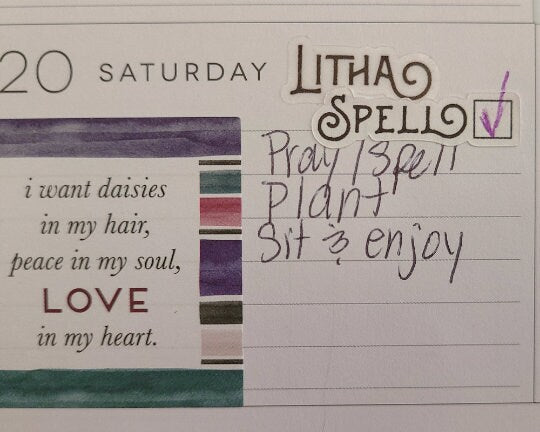 20 SATURDAY
LITHA
SPELL
Pray / spell
Plant
Sit & enjoy
i want daisies
in my hair,
peace in my soul,
LOVE
in my heart.